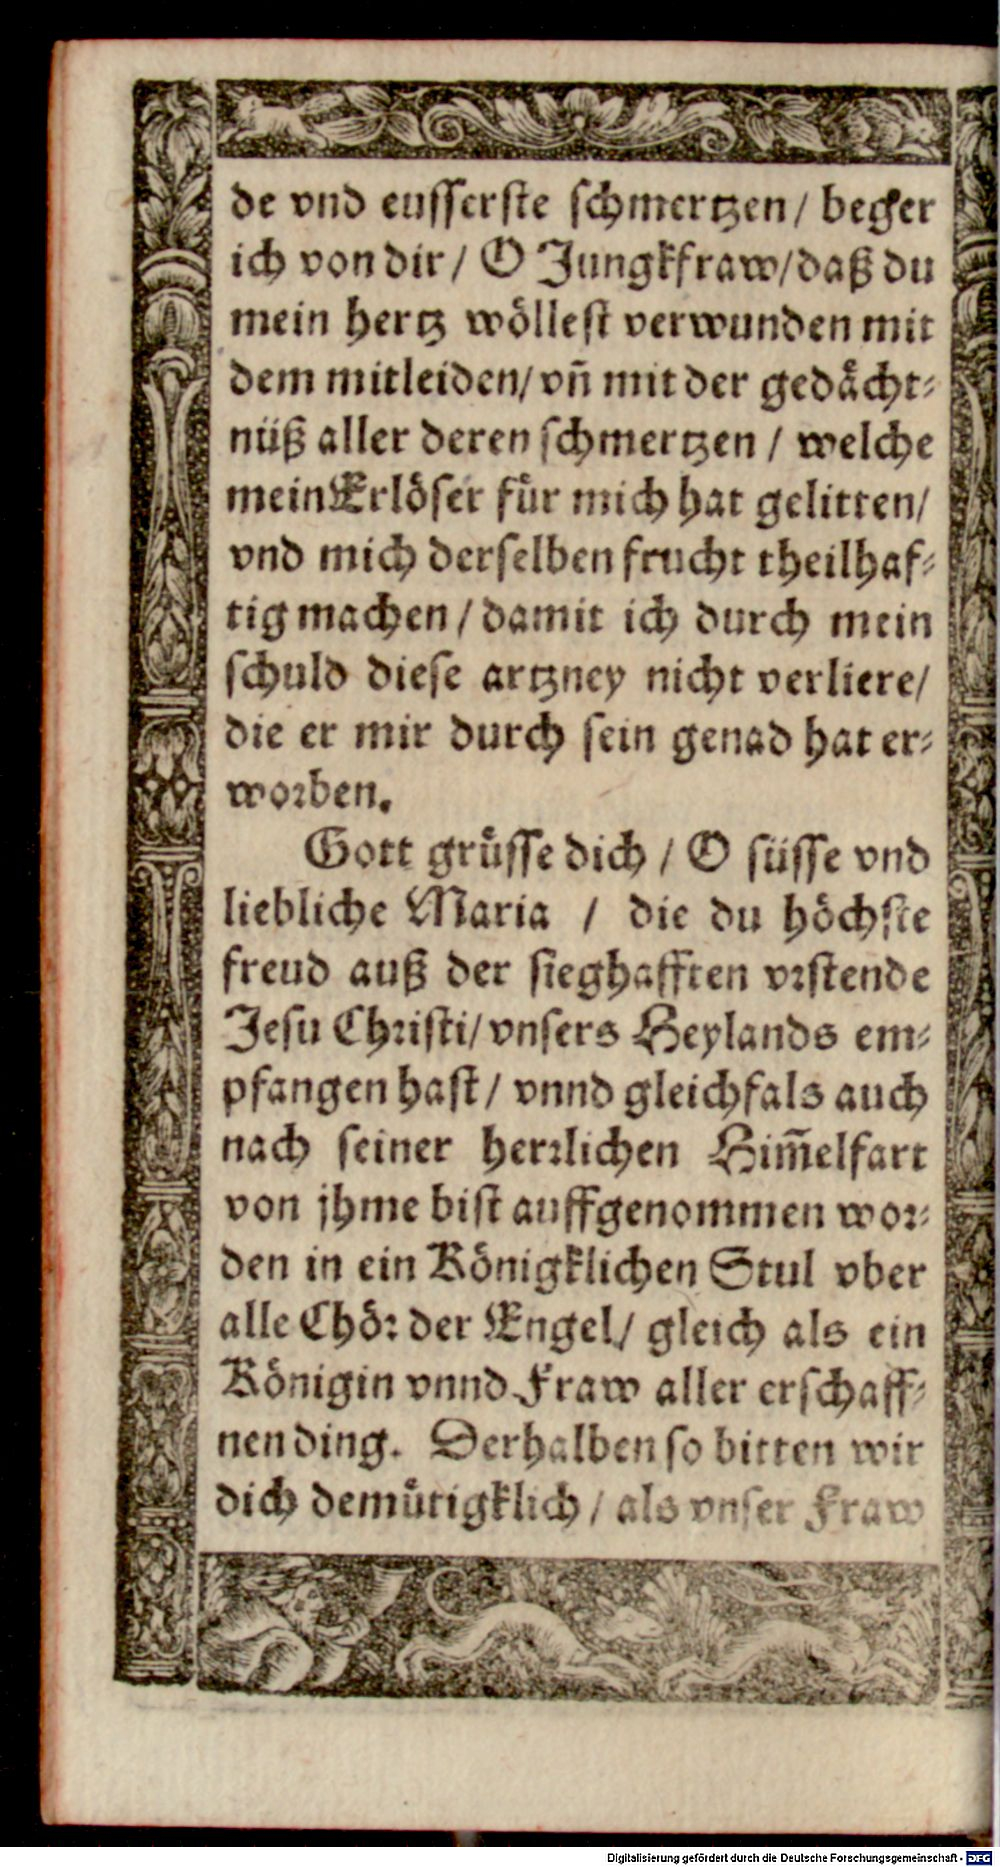 de vnd eusserste schmertzen / beger
ich von dir / O Jungkfraw / daß du
mein hertz wöllest verwunden mit
dem mitleiden / vñ mit der gedächt-
nüß aller deren schmertzen / welche
mein Erlöser für mich hat gelitten /
vnd mich derselben frucht theilhaf-
tig machen / damit ich durch mein
schuld diese artzney nicht verliere /
die er mir durch sein genad hat er-
worben.
Gott grüsse dich / O süsse vnd
liebliche Maria / die du höchste
freud auß der sieghafften vrstende
Jesu Christi / vnsers Heylands em-
pfangen hast / vnnd gleichfals auch
nach seiner herrlichen Him̃elfart
von jhme bist auffgenommen wor-
den in ein Königklichen Stul vber
alle Chör der Engel / gleich als ein
Königin vnnd Fraw aller erschaff-
nen ding. Derhalben so bitten wir
dich demütigklich / als vnser Fraw
Digitalisierung gefördert durch die Deutsche Forschungsgemeinschaft - DFG